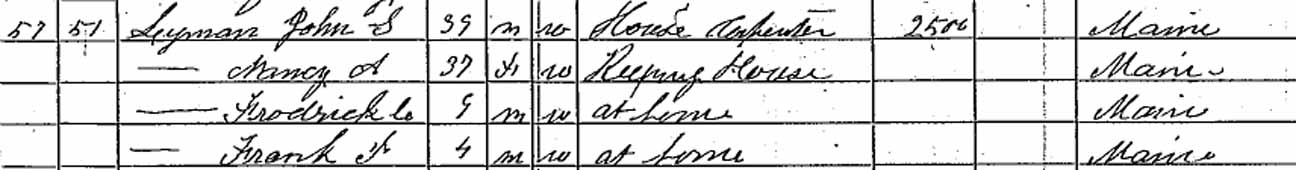 57 51 Seyman John S 39 m w House Carpenter 2500 Maine
— Nancy A 37 F w Keeping House Maine
— Frodrick C 9 m w at home Maine
— Frank F 4 m w at home Maine